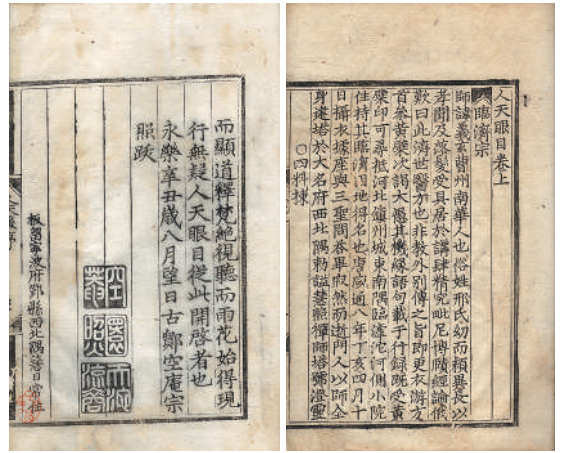 人天眼目卷上
臨濟宗
師諱義玄曹州南華人也俗姓邢氏幼而頴異長以
孝聞及落髮受具居於講肆精究毗尼博賾經論俄
歎曰此濟世醫方也非教外別傳之旨即更衣游方
首參黃檗次謁大愚其機緣語句載于行錄既受黃
檗印可尋抵河北鎮州城東南隅臨滹沱河側小院
住持其臨濟因地得名也唐咸通八年丁亥四月十
日攝衣據座與三聖問荅畢寂然而逝門人以師全
身建塔於大名府西北隅勅謚慧照禪師塔號澄靈
〇四料揀
而顯道釋梵絕視聽而雨花始得現
行無疑人天眼目從此開啓者也
永樂辛丑歲八月望日古鄮空庵宗
照跋
板留寧波府鄞縣西北隅 日常住